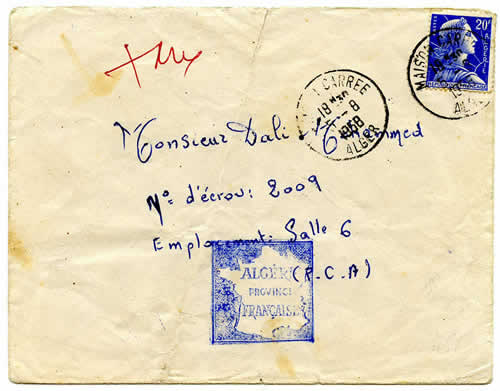 20F
ALGERIE
MAISON CARREE
18 H30
8
1958
ALGER
Monsieur Dali Mohammed
N° d'écrou: 2009
Emplacement: Salle 6
(P.C.A)
ALGERIE
PROVINCE
FRANÇAISE